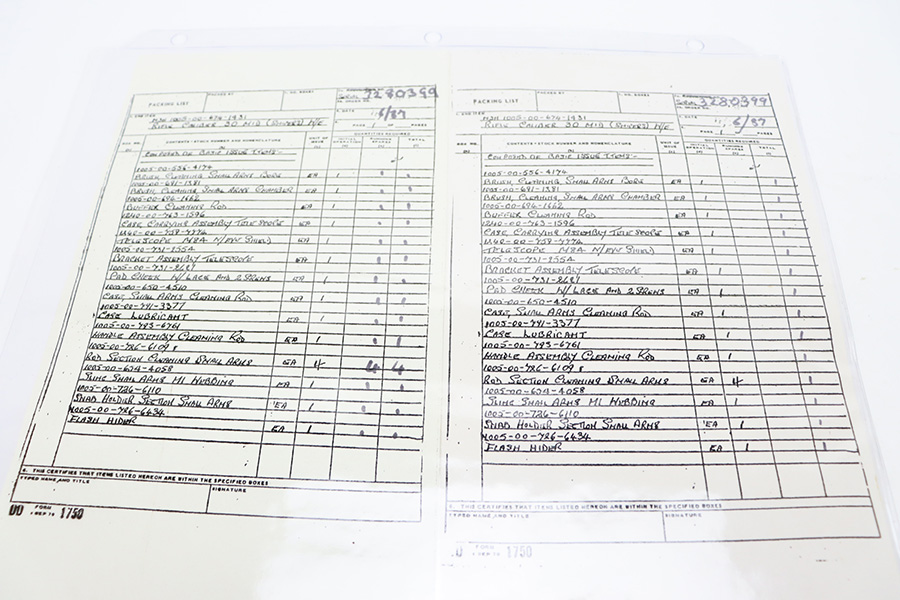 PACKING LIST
PACKED BY
NO. BOXES
SERIAL 3280399
IN ORDER NO.
END ITEM
NSN 1005-00-674-1431
RIFLE CALIBER 30 M1D (SNIPERS) W/E
DATE
6/87
PAGE 1 OF PAGES
BOX NO.
CONTENTS - STOCK NUMBER AND NOMENCLATURE
UNIT OF ISSUE
QUANTITIES REQUIRED
INITIAL OPERATION
RUNNING SPARES
TOTAL
COMPONENT OF BASIC ISSUE ITEMS-
1005-00-556-4174
BRUSH, CLEANING SMALL ARMS BORE EA 1
1005-00-691-1381
BRUSH, CLEANING SMALL ARMS CHAMBER EA 1
1005-00-696-1662
BUFFER CLEANING ROD EA 1
1240-00-763-1596
CASE, CARRYING ASSEMBLY TELESCOPE EA 1
1240-00-759-7774
TELESCOPE M84 W/EYE SHIELD EA 1
1005-00-731-1554
BRACKET ASSEMBLY TELESCOPE EA 1
1005-00-731-2687
PAD CHEEK W/LACE AND 2 SCREWS EA 1
1005-00-650-4510
CASE, SMALL ARMS CLEANING ROD EA 1
1005-00-741-3377
CASE LUBRICANT EA 1
1005-00-793-6761
HANDLE ASSEMBLY CLEANING ROD EA 1
1005-00-726-6109
ROD SECTION CLEANING SMALL ARMS EA 4 4
1005-00-654-4058
SLING SMALL ARMS M1 WEBBING EA 1
1005-00-726-6110
SWAB HOLDIER SECTION SMALL ARMS EA 1
1005-00-726-6434
FLASH HIDER EA 1
6. THIS CERTIFIES THAT ITEMS LISTED HEREON ARE WITHIN THE SPECIFIED BOXES
TYPED NAME AND TITLE
SIGNATURE
DD FORM 1 SEP 70 1750
PACKING LIST
PACKED BY
NO. BOXES
SERIAL 3280399
IN ORDER NO.
END ITEM
NSN 1005-00-674-1431
RIFLE CALIBER 30 M1D (SNIPERS) W/E
DATE
6/87
PAGE 1 OF PAGES
BOX NO.
CONTENTS - STOCK NUMBER AND NOMENCLATURE
UNIT OF ISSUE
QUANTITIES REQUIRED
INITIAL OPERATION
RUNNING SPARES
TOTAL
COMPONENT OF BASIC ISSUE ITEMS-
1005-00-556-4174
BRUSH, CLEANING SMALL ARMS BORE EA 1
1005-00-691-1381
BRUSH, CLEANING SMALL ARMS CHAMBER EA 1
1005-00-696-1662
BUFFER CLEANING ROD EA 1
1240-00-763-1596
CASE, CARRYING ASSEMBLY TELESCOPE EA 1
1240-00-759-7774
TELESCOPE M84 W/EYE SHIELD EA 1
1005-00-731-1554
BRACKET ASSEMBLY TELESCOPE EA 1
1005-00-731-2687
PAD CHEEK W/LACE AND 2 SCREWS EA 1
1005-00-650-4510
CASE, SMALL ARMS CLEANING ROD EA 1
1005-00-741-3377
CASE LUBRICANT EA 1
1005-00-793-6761
HANDLE ASSEMBLY CLEANING ROD EA 1
1005-00-726-6109
ROD SECTION CLEANING SMALL ARMS EA 4
1005-00-654-4058
SLING SMALL ARMS M1 WEBBING EA 1
1005-00-726-6110
SWAB HOLDIER SECTION SMALL ARMS EA 1
1005-00-726-6434
FLASH HIDER EA 1
6. THIS CERTIFIES THAT ITEMS LISTED HEREON ARE WITHIN THE SPECIFIED BOXES
TYPED NAME AND TITLE
SIGNATURE
FORM 1 SEP 70 1750